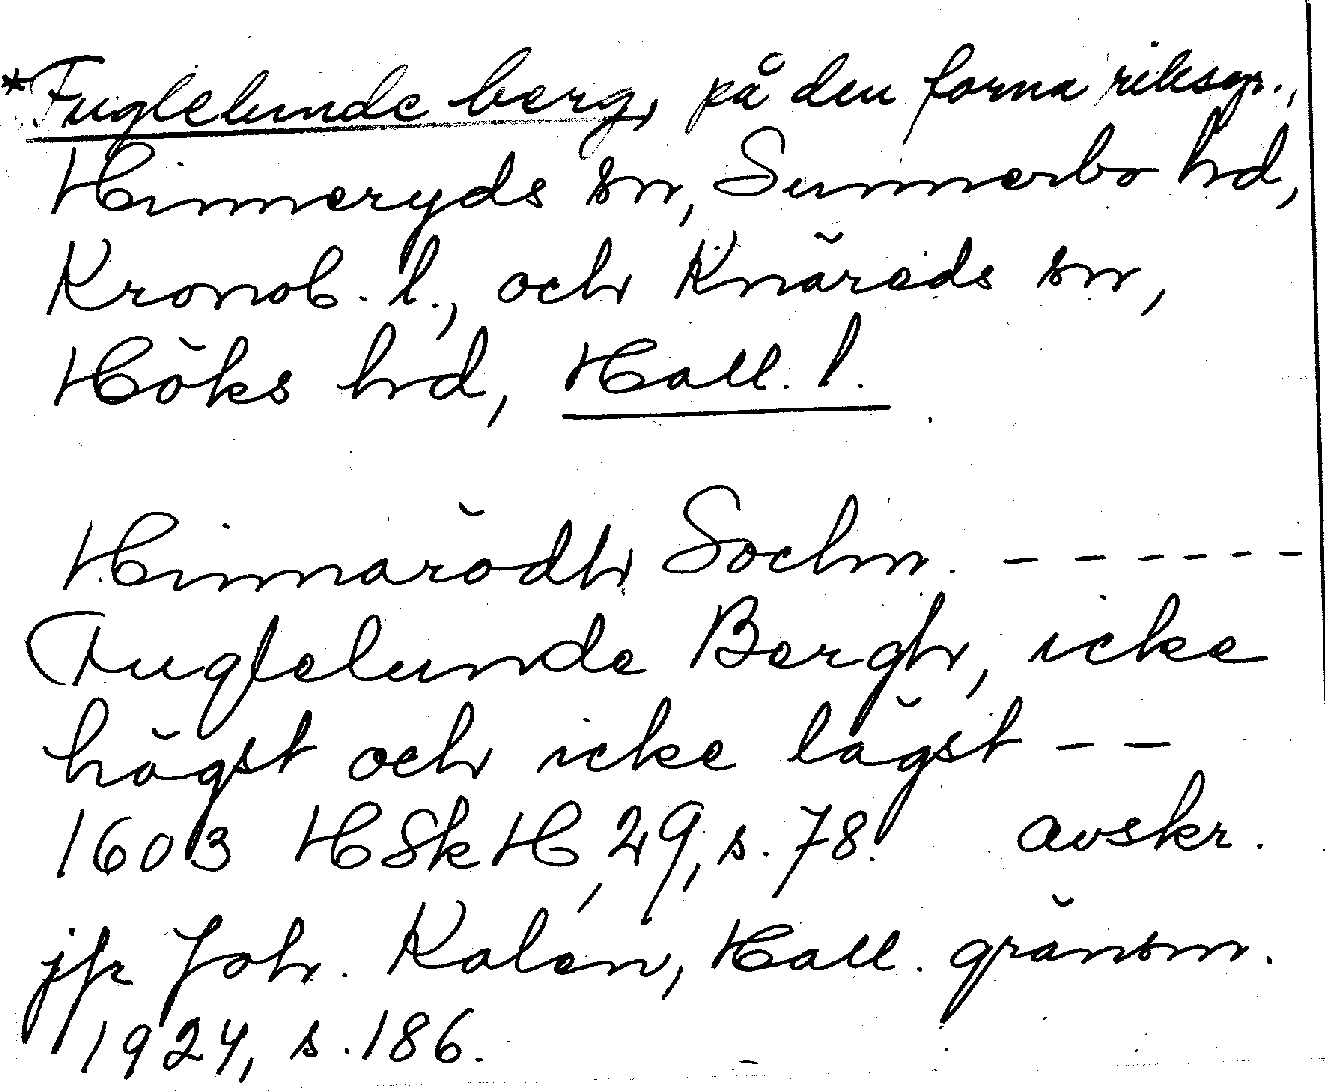 *Fuglelunde berg, på den forna riksgr.,
Hinneryds sn, Sunnerbo hd,
Kronob. l., och Knäreds sn,
Höks hd, Hall. l.
Hinnarödh Sochn. ------
Fuglelunde Bergh, icke
högst och icke lägst --
1603 HSkH, 29, s. 78. avskr.
jfr Joh. Kalén, Hall. gränsm.
1924, s. 186.